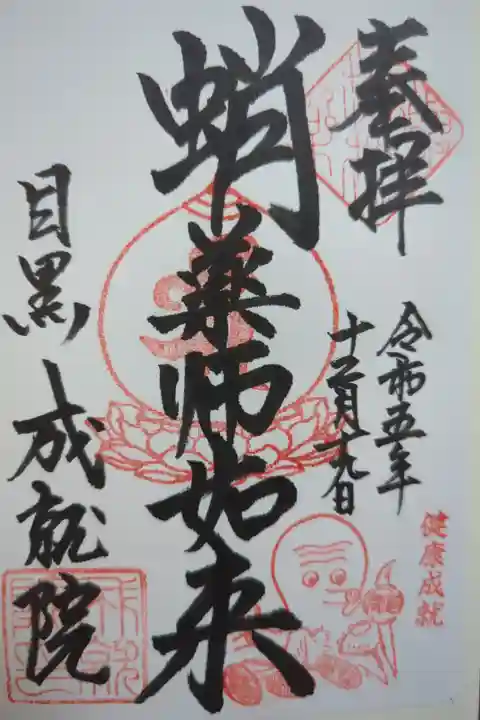 奉拝
令和五年
十二月十九日
蛸薬師如来
健康成就
目黒 成就院